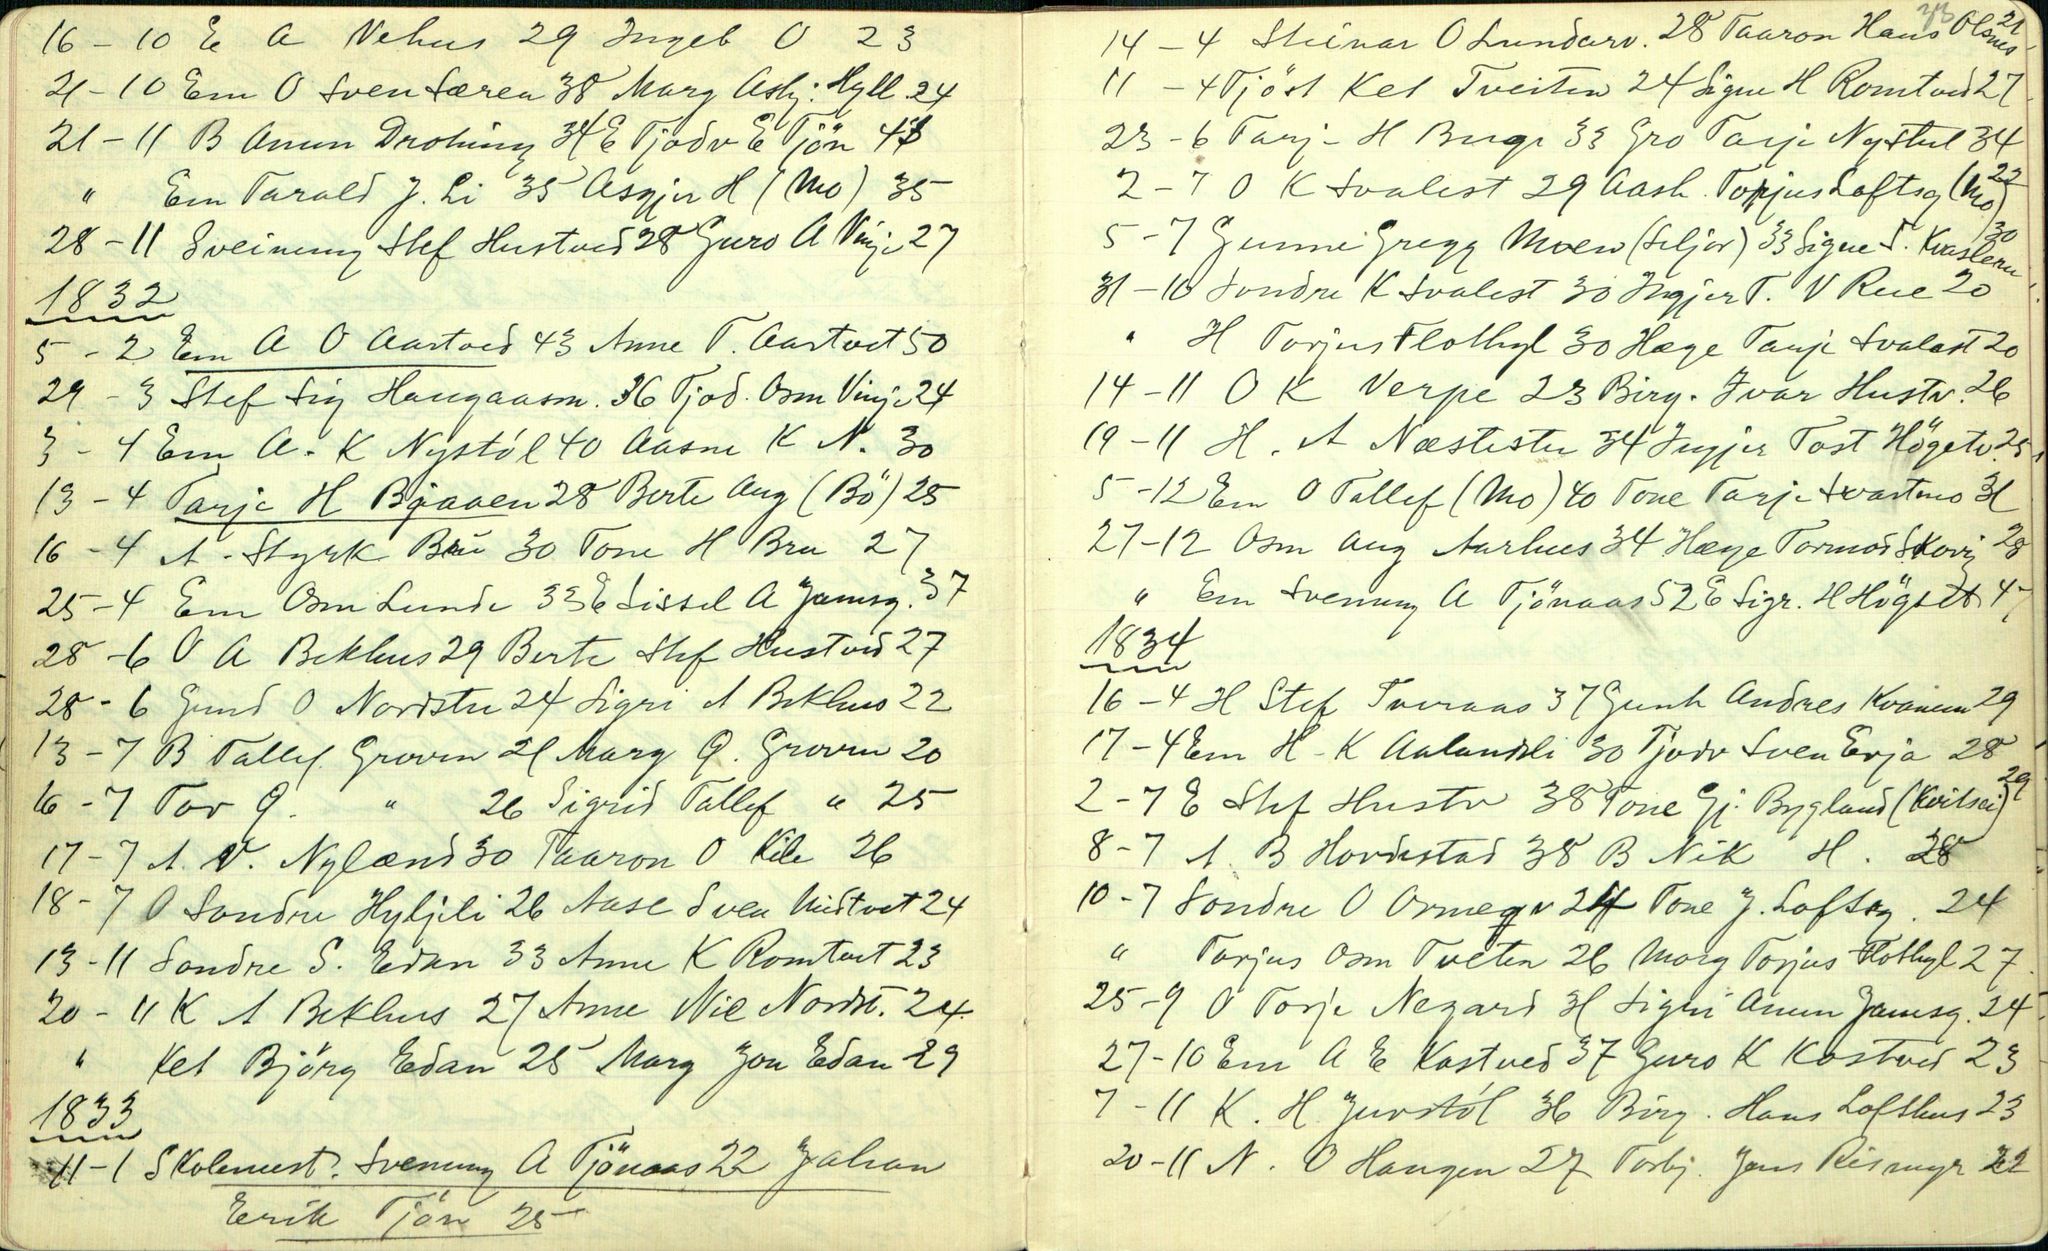 16 - 10 E A Vehus 29 Ingeb O 23
21 - 10 Em O Sven Særen 38 Marg Asbj. Hyll. 24
21 - 11 B Anun Droning 34 E Tjodv E Tjön 47
" Em Tarald J. Li 35 Asgjer H (Mo) 35
28 - 11 Sveinung Stef Hustved 28 Guro A Vinje 27
1832
5 - 2 Em A O Aartved 43 Anne T. Aartvet 50
29 - 3 Stef Sig Haugaasm. 36 Tjod. Osm Vinje 24
3 - 4 Em A. K Nystól 40 Aasne K N. 30
13 - 4 Tarje H Bjaaen 28 Berte Aug (Bö) 25
16 - 4 A. Styrk Bru 30 Tone H Bru 27
25 - 4 Em Osm Lunde 33 E Sissel A Jamsg. 37
28 - 6 O A Bekhus 29 Berte Stef Hustved 27
28 - 6 Gund O Nordstu 24 Sigri A Bekhus 22
13 - 7 B Tallef Groven 21 Marg G. Groven 20
16 - 7 Tov G. " 26 Sigrid Tallef " 25
17 - 7 A. V. Nylænd 30 Taaron O Kile 26
18 - 7 O Sondre Hyljeli 26 Aase Sven Midtvet 24
13 - 11 Sondre S. Edan 33 Anne K Romtvet 23
20 - 11 K A Bekhus 27 Anne Nil Nordst. 24
" Ket Björg Edan 25 Marg Jon Edan 29
1833
11 - 1 Skolemest. Svenung A Tjönaas 22 Johan
Erik Tjön 25
14 - 4 Steinar O Lundarv. 28 Taaron Hans Olsnes 21
11 - 4 Tjöst Ket Tveiten 24 Signe H Romtved 27
23 - 6 Tarj. H Buge 33 Gro Tarje Nystul 34
2 - 7 O K Svalest 29 Aash. Torjus Loftsg (Mo) 22
5 - 7 Gunne Gregg Moen (Seljor) 33 Signe S. 30
31 - 10 Sondre K Svalest 30 Ingjer T. V Rue 20
" H Torjus Flothyl 30 Hæge Tarje Svalest 20
14 - 11 O K Verpe 23 Birg. Ivar Hustv. 26
19 - 11 H. A Næstestu 34 Ingjer Tost Högetv. 25
5 - 12 Em O Tallef (Mo) 40 Tone Tarje Svartmo 31
27 - 12 Osm Aug Aarhus 34 Hæge Tormod Skorj 28
" Em Svenung A Tjönaas 52 E Sigr. H Högett 47
1834
16 - 4 H Stef Tveraas 37 Gunh Andres Kvamen 29
17 - 4 Em H. K Aalandsli 30 Tjodv Sven Erja 28
2 - 7 E Stef Hustv 38 Tone Gj. Bygland (Kvitsei) 29
8 - 7 A. B Hordestad 38 B Nik H. 28
10 - 7 Sondre O Ormegr 24 Tone J. Loftsg. 24
" Torjus Osm Tveten 26 Marg Torjus Flothyl 27
25 - 9 O Torje Negard 31 Sigri Anun Jamsg. 24
27 - 10 Em A E Kostved 37 Guro K Kostved 23
7 - 11 K. H. Juvstól 36 Birg. Hans Lofthus 23
20 - 11 N. O Haugen 27 Torbj. Jens Reismyr 22